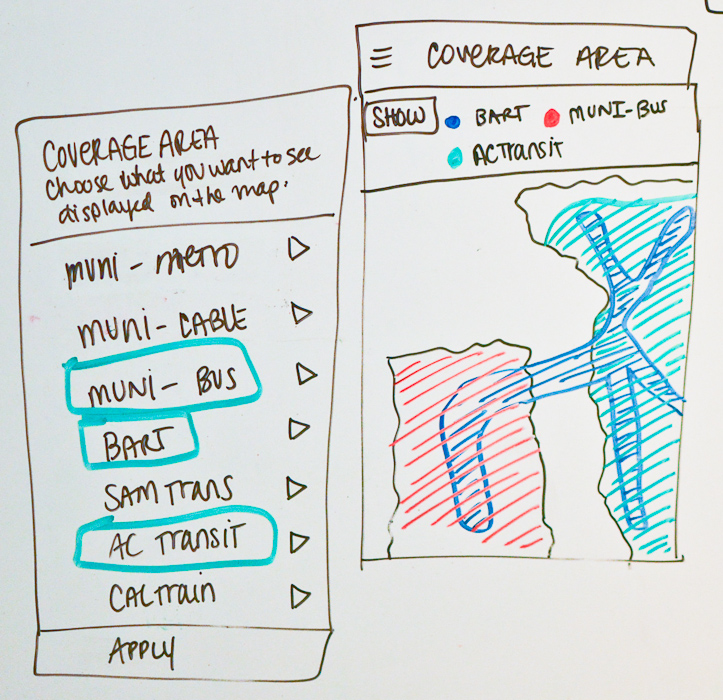 COVERAGE AREA
Choose what you want to see
displayed on the map.
MUNI - METRO
MUNI - CABLE
MUNI - BUS
BART
SAMTRANS
AC Transit
CALTrain
APPLY
COVERAGE AREA
SHOW BART MUNI-BUS
ACTransit